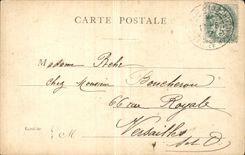 CARTE POSTALE
Madame Behr
Chez Monsieur Boucheron
66 rue Royale
Versailles